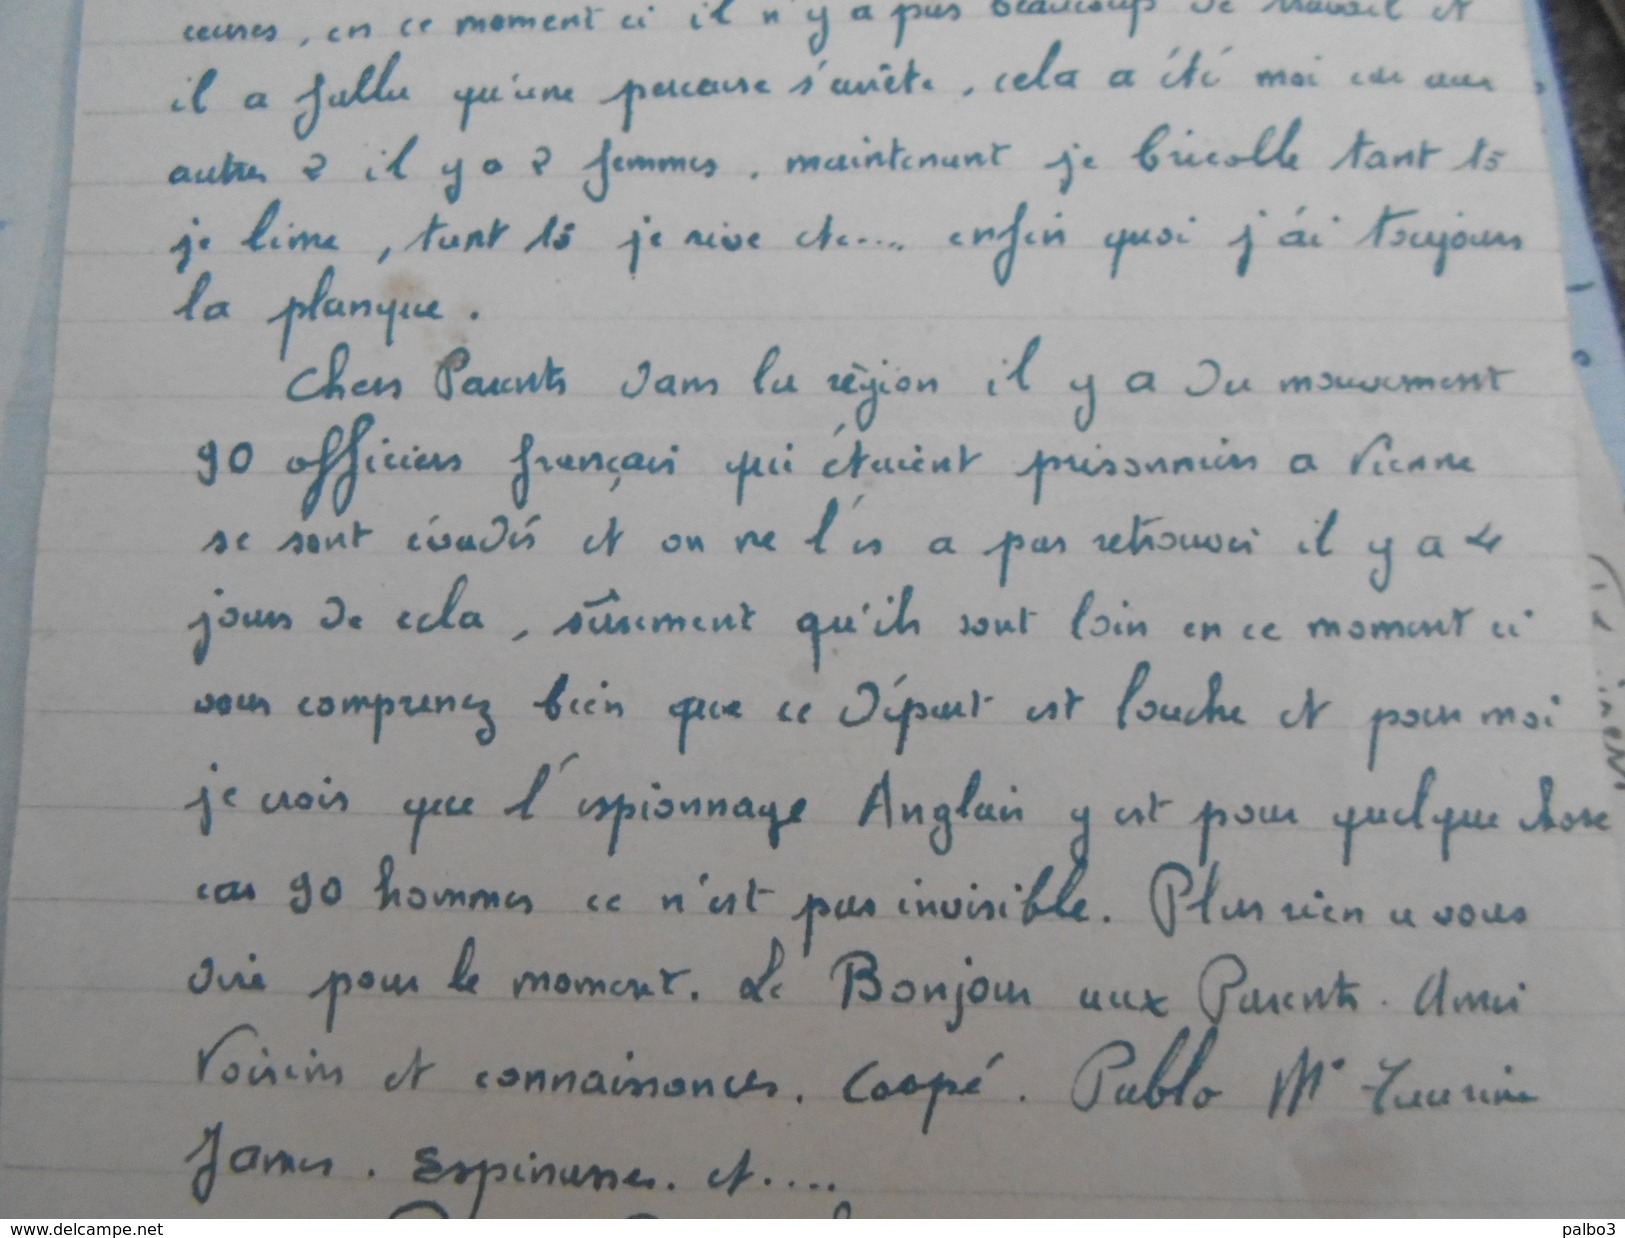 ceuses, en ce moment ci il n'y a pas beaucoup de travail et
il a fallu qu'une perceuse s'arrête, cela a été moi car aux
autres 2 il y a 2 femmes. maintenant je bricolle tant to
je lime, tant to je rive etc.... enfin quoi j'ai toujours
la planque.
Chers Parents dans la région il y a du mouvement
90 officiers français qui étaient prisonniers a Vienne
se sont évadés et on ne l'es a pas retrouvés il y a 4
jours de cela, sûrement qu'ils sont loin en ce moment ci
vous comprenez bien que ce départ est louche et pour moi
je crois que l'espionnage Anglais y est pour quelque chose
car 90 hommes ce n'est pas invisible. Plus rien a vous
dire pour le moment. Le Bonjour aux Parents. Amis
Voisins et connaissances. Coopé. Pablo Mr
James. Espinasse. et....
www.delcampe.net
palbo3